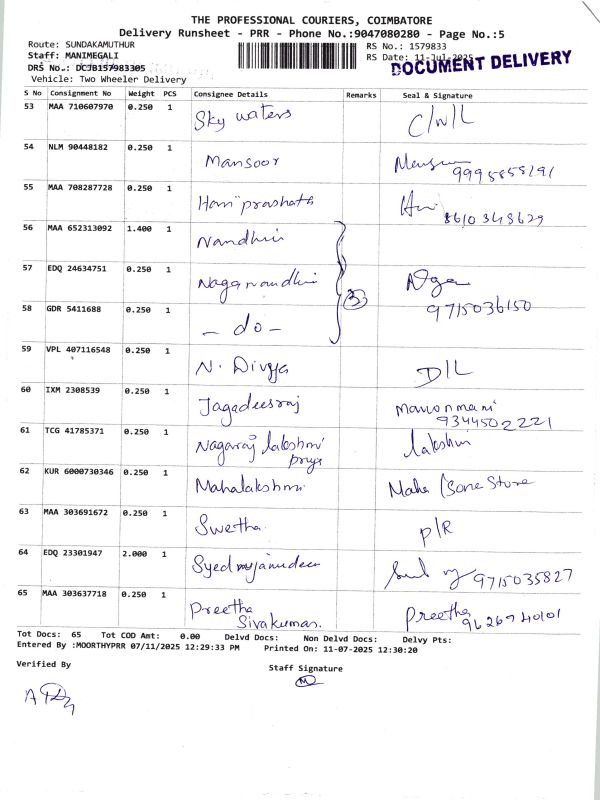 THE PROFESSIONAL COURIERS, COIMBATORE
Delivery Runsheet - PRR - Phone No.:9047080280 - Page No.:5
Route: SUNDAKAMUTHUR RS No.: 1579833
Staff: MANIMEGALI RS Date: 11-Jul-2025
DOCUMENT DELIVERY
DRS No.: DCJB157983305
Vehicle: Two Wheeler Delivery
S No Consignment No Weight PCS Consignee Details Remarks Seal & Signature
53 MAA 710607970 0.250 1 Sky waters C/N/L
54 NLM 90448182 0.250 1 Mansoor 9995858291
55 MAA 708287728 0.250 1 Hari prashath Hari 8610348629
56 MAA 652313092 1.400 1 Nandhini
57 EDQ 24634751 0.250 1 Naganandhini 3 Naga
58 GDR 5411688 0.250 1 - do - 9715036150
59 VPL 407116548 0.250 1 N. Divya D/L
60 IXM 2308539 0.250 1 Jagadeesraj Manonmani 9344502221
61 TCG 41785371 0.250 1 Nagaraj lakshmi priya lakshmi
62 KUR 6000730346 0.250 1 Mahalakshmi Maha (Sone Store
63 MAA 303691672 0.250 1 Swetha P/R
64 EDQ 23301947 2.000 1 Syed mujamudeen 9715035827
65 MAA 303637718 0.250 1 Preetha Sivakumar. Preetha 9626940101
Tot Docs: 65 Tot COD Amt: 0.00 Delvd Docs: Non Delvd Docs: Delvy Pts:
Entered By :MOORTHYPRR 07/11/2025 12:29:33 PM Printed On: 11-07-2025 12:30:20
Verified By Staff Signature
M